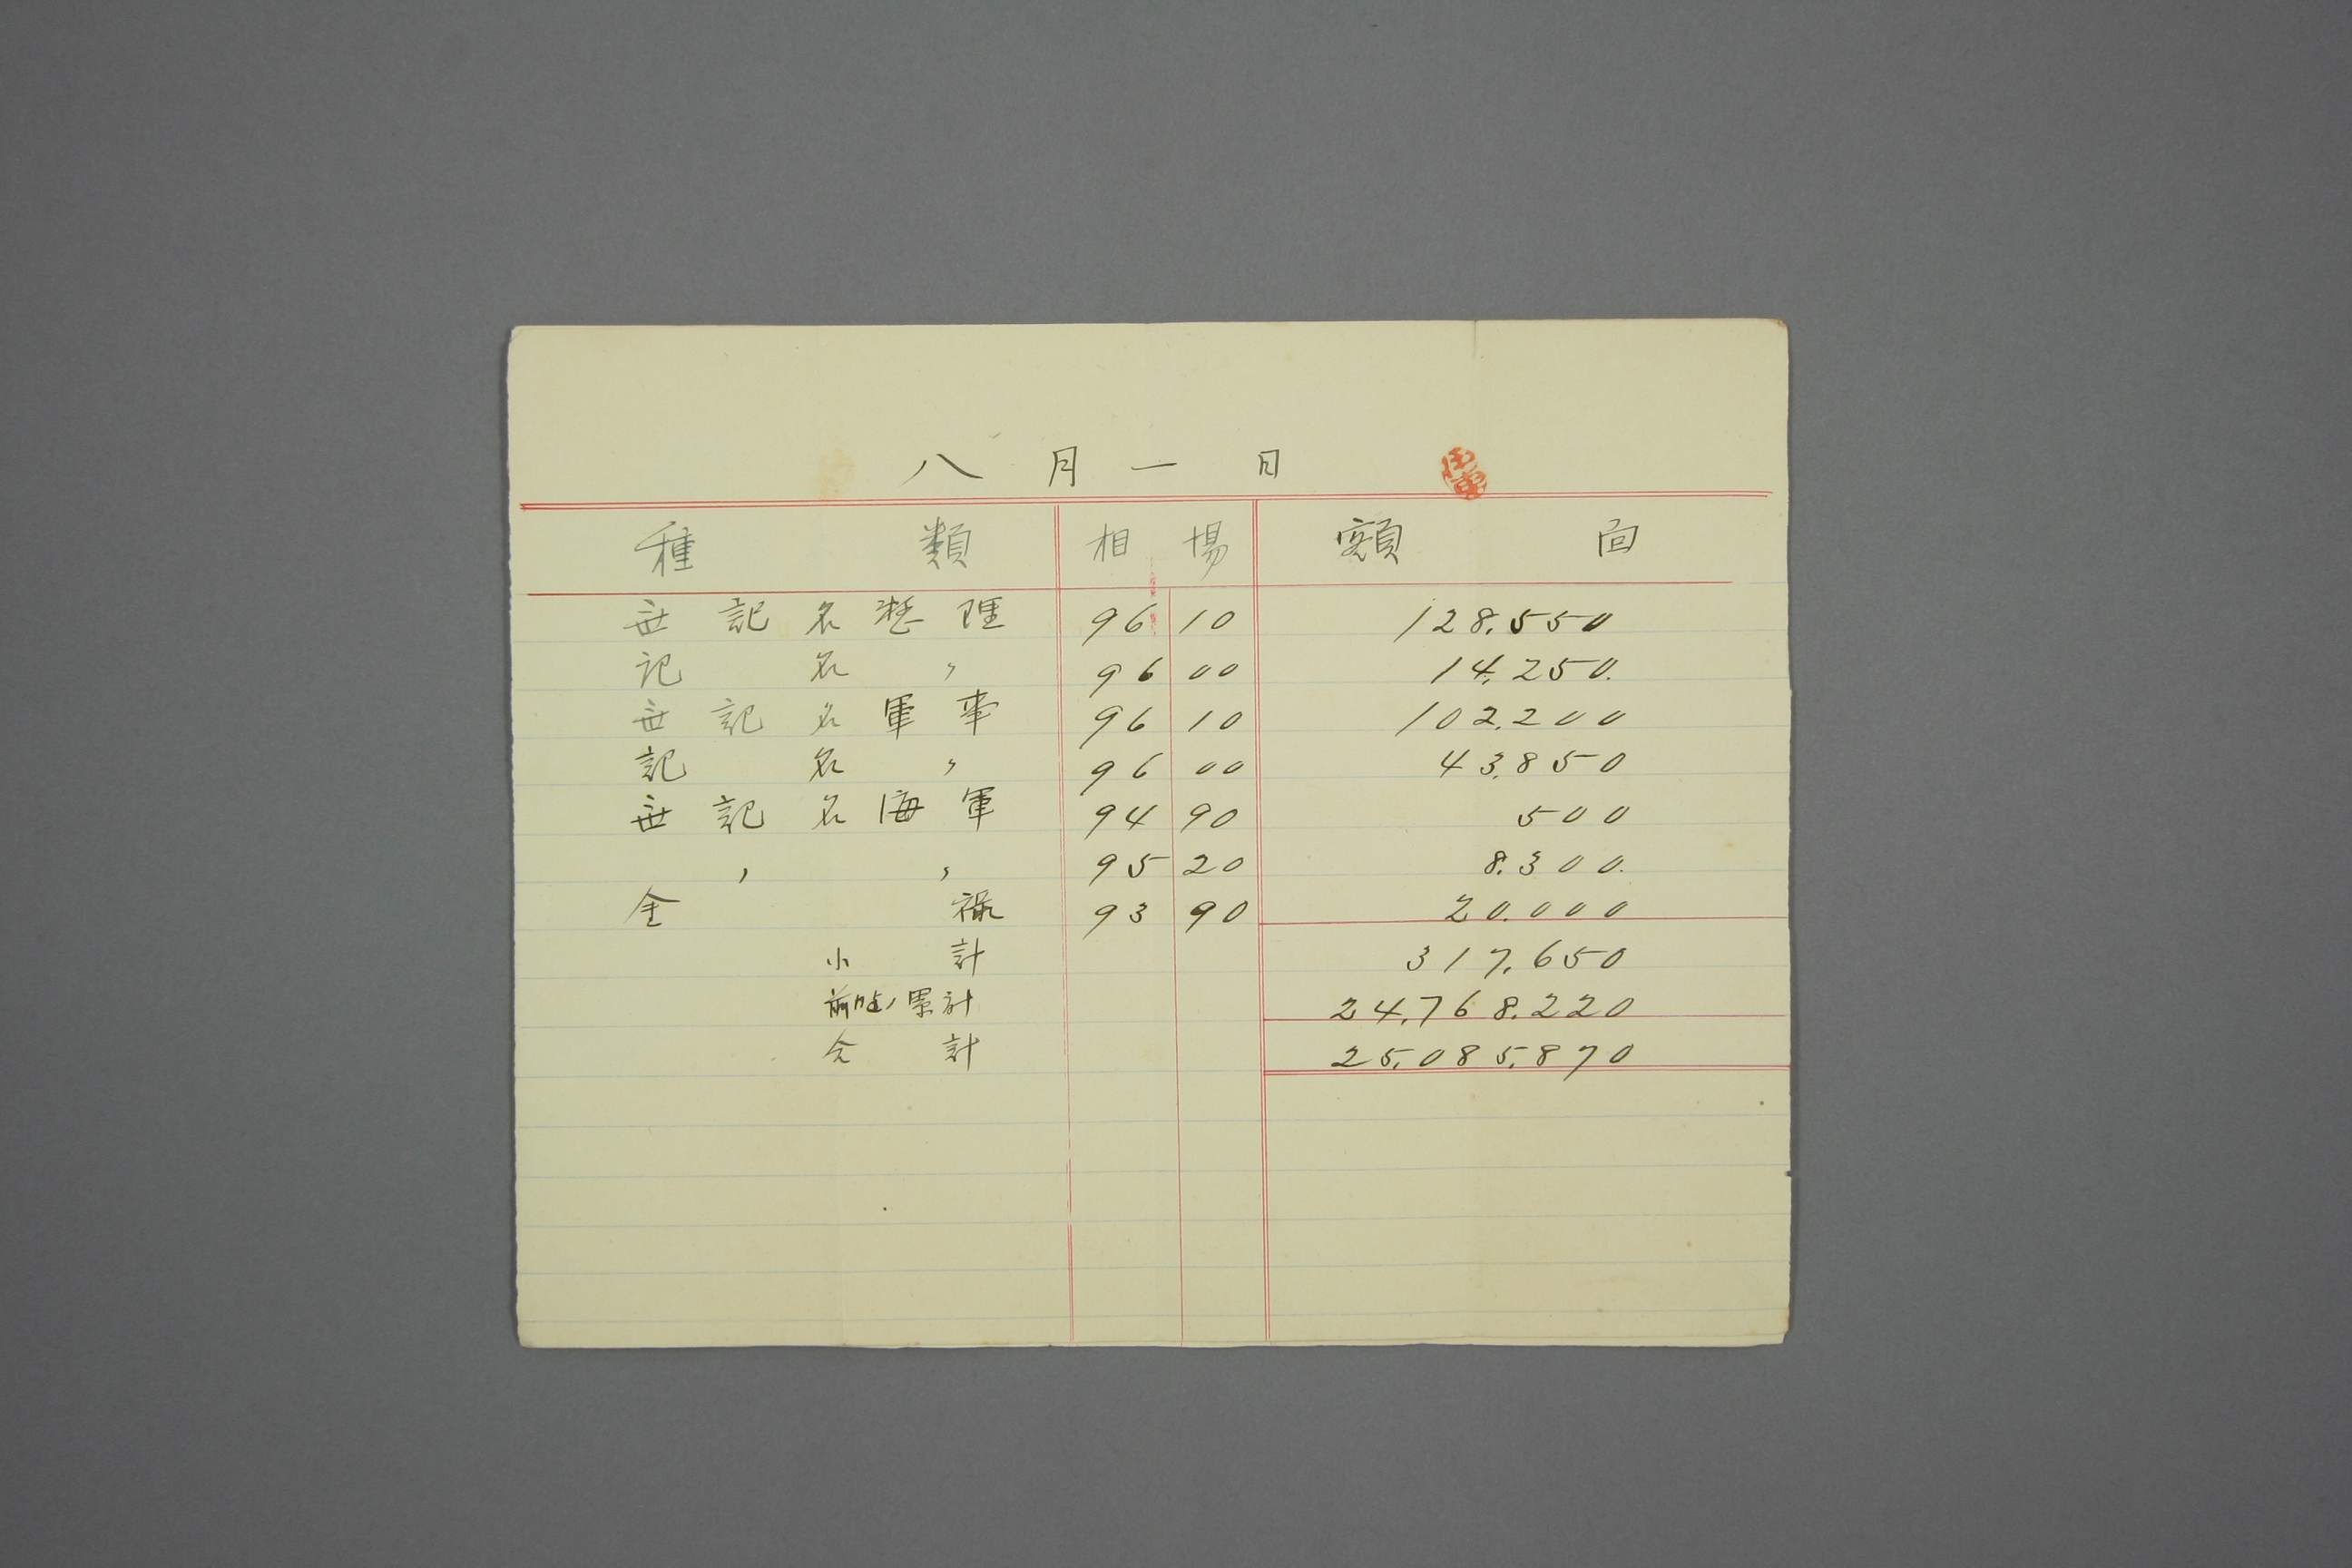 八月一日
種類 相場 額面
無記名整理 96 10 128.550
記名 〃 96 00 14.250.
無記名軍事 96 10 102.200
記名 〃 96 00 43.850
無記名海軍 94 90 500
〃 〃 95 20 8.300.
金禄 93 90 20.000
小計 317.650
前日迄ノ累計 24.768.220
合計 25.085.870